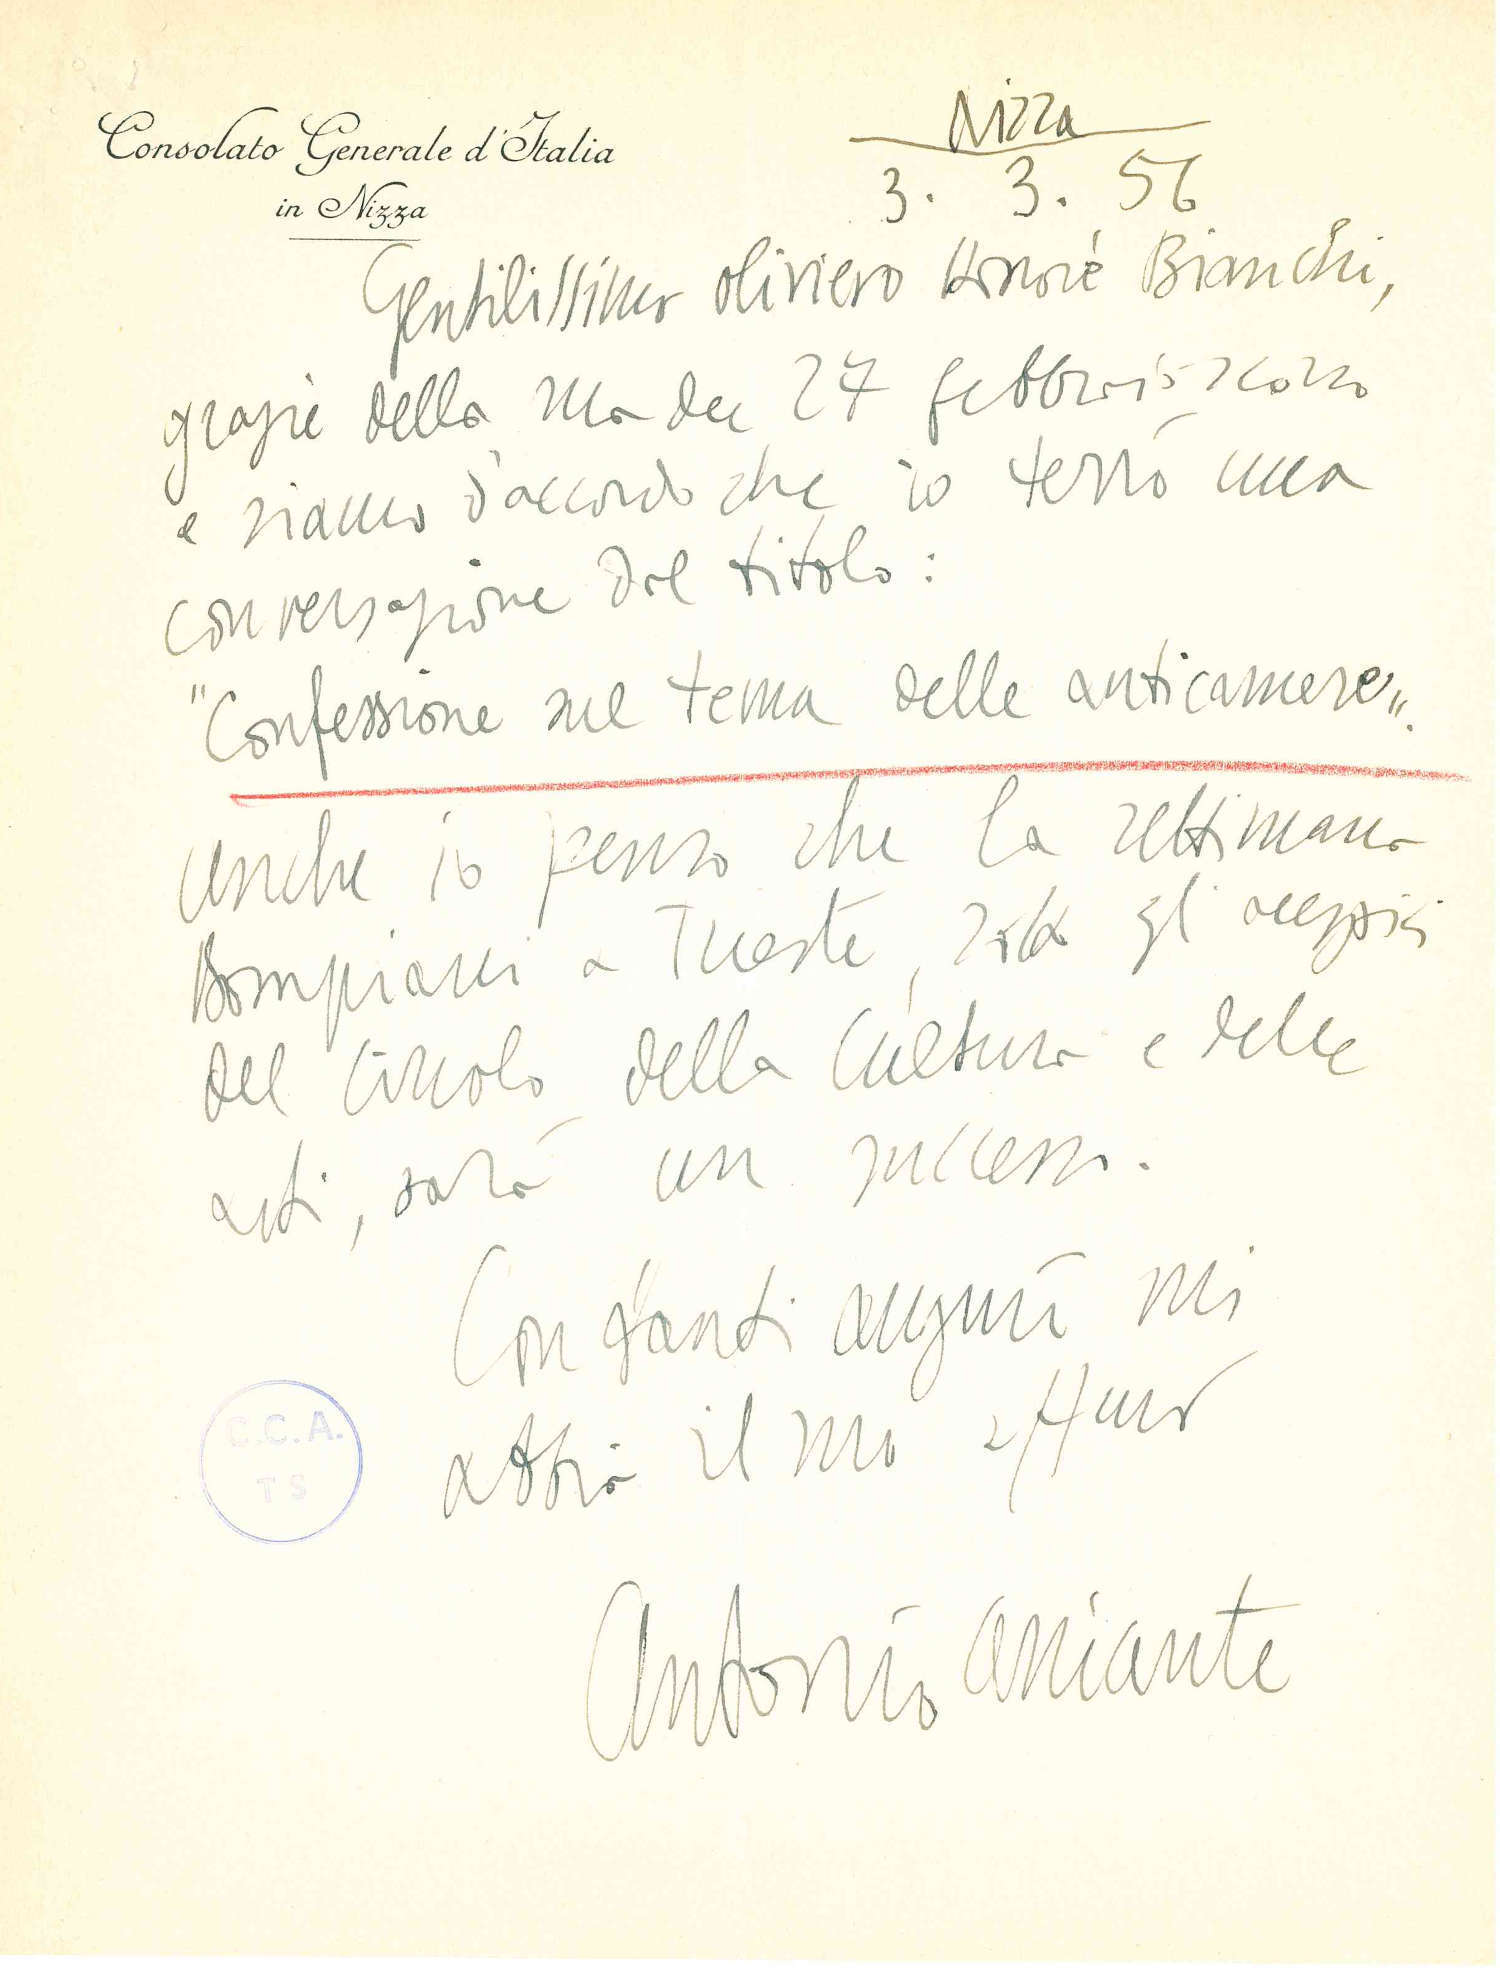 Consolato Generale d'Italia
in Nizza
Nizza
3. 3. 56
Gentilissimo Oliviero Honoré Bianchi,
grazie della sua del 27 febbraio scorso
e siamo d'accordo che io terrò una
conversazione dal titolo:
"Confessione sul tema delle anticamere".
Anche io penso che la settimana
Bompiani a Trieste, sotto gli auspici
del Circolo della Cultura e delle
arti, sarà un successo.
Con tanti auguri mi
abbia il suo aff.mo
Antonio Aniante
C.C.A.
TS